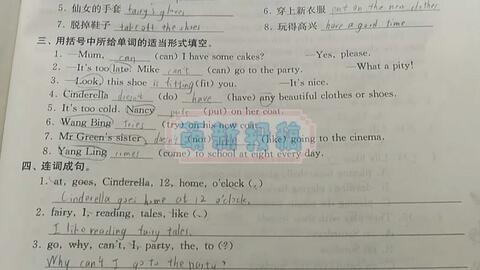 5. 仙女的手套 fairy's gloves 6. 穿上新衣服 put on the new clothes
7. 脱掉鞋子 take off the shoes 8. 玩得高兴 have a good time
三、用括号中所给单词的适当形式填空。
1. —Mum, can (can) I have some cakes? —Yes, please.
2. —It's too late. Mike can't (can) go to the party. —What a pity!
3. —Look, this shoe is fitting (fit) you. —It's nice.
4. Cinderella doesn't (do) have (have) any beautiful clothes or shoes.
5. It's too cold. Nancy puts (put) on her coat.
6. Wang Bing tries (try) on his new coat.
7. Mr Green's sister doesn't (not) (like) going to the cinema.
8. Yang Ling comes (come) to school at eight every day.
四、连词成句。
1. at, goes, Cinderella, 12, home, o'clock (.)
Cinderella goes home at 12 o'clock.
2. fairy, I, reading, tales, like (.)
I like reading fairy tales.
3. go, why, can't, I, party, the, to (?)
Why can't I go to the party?